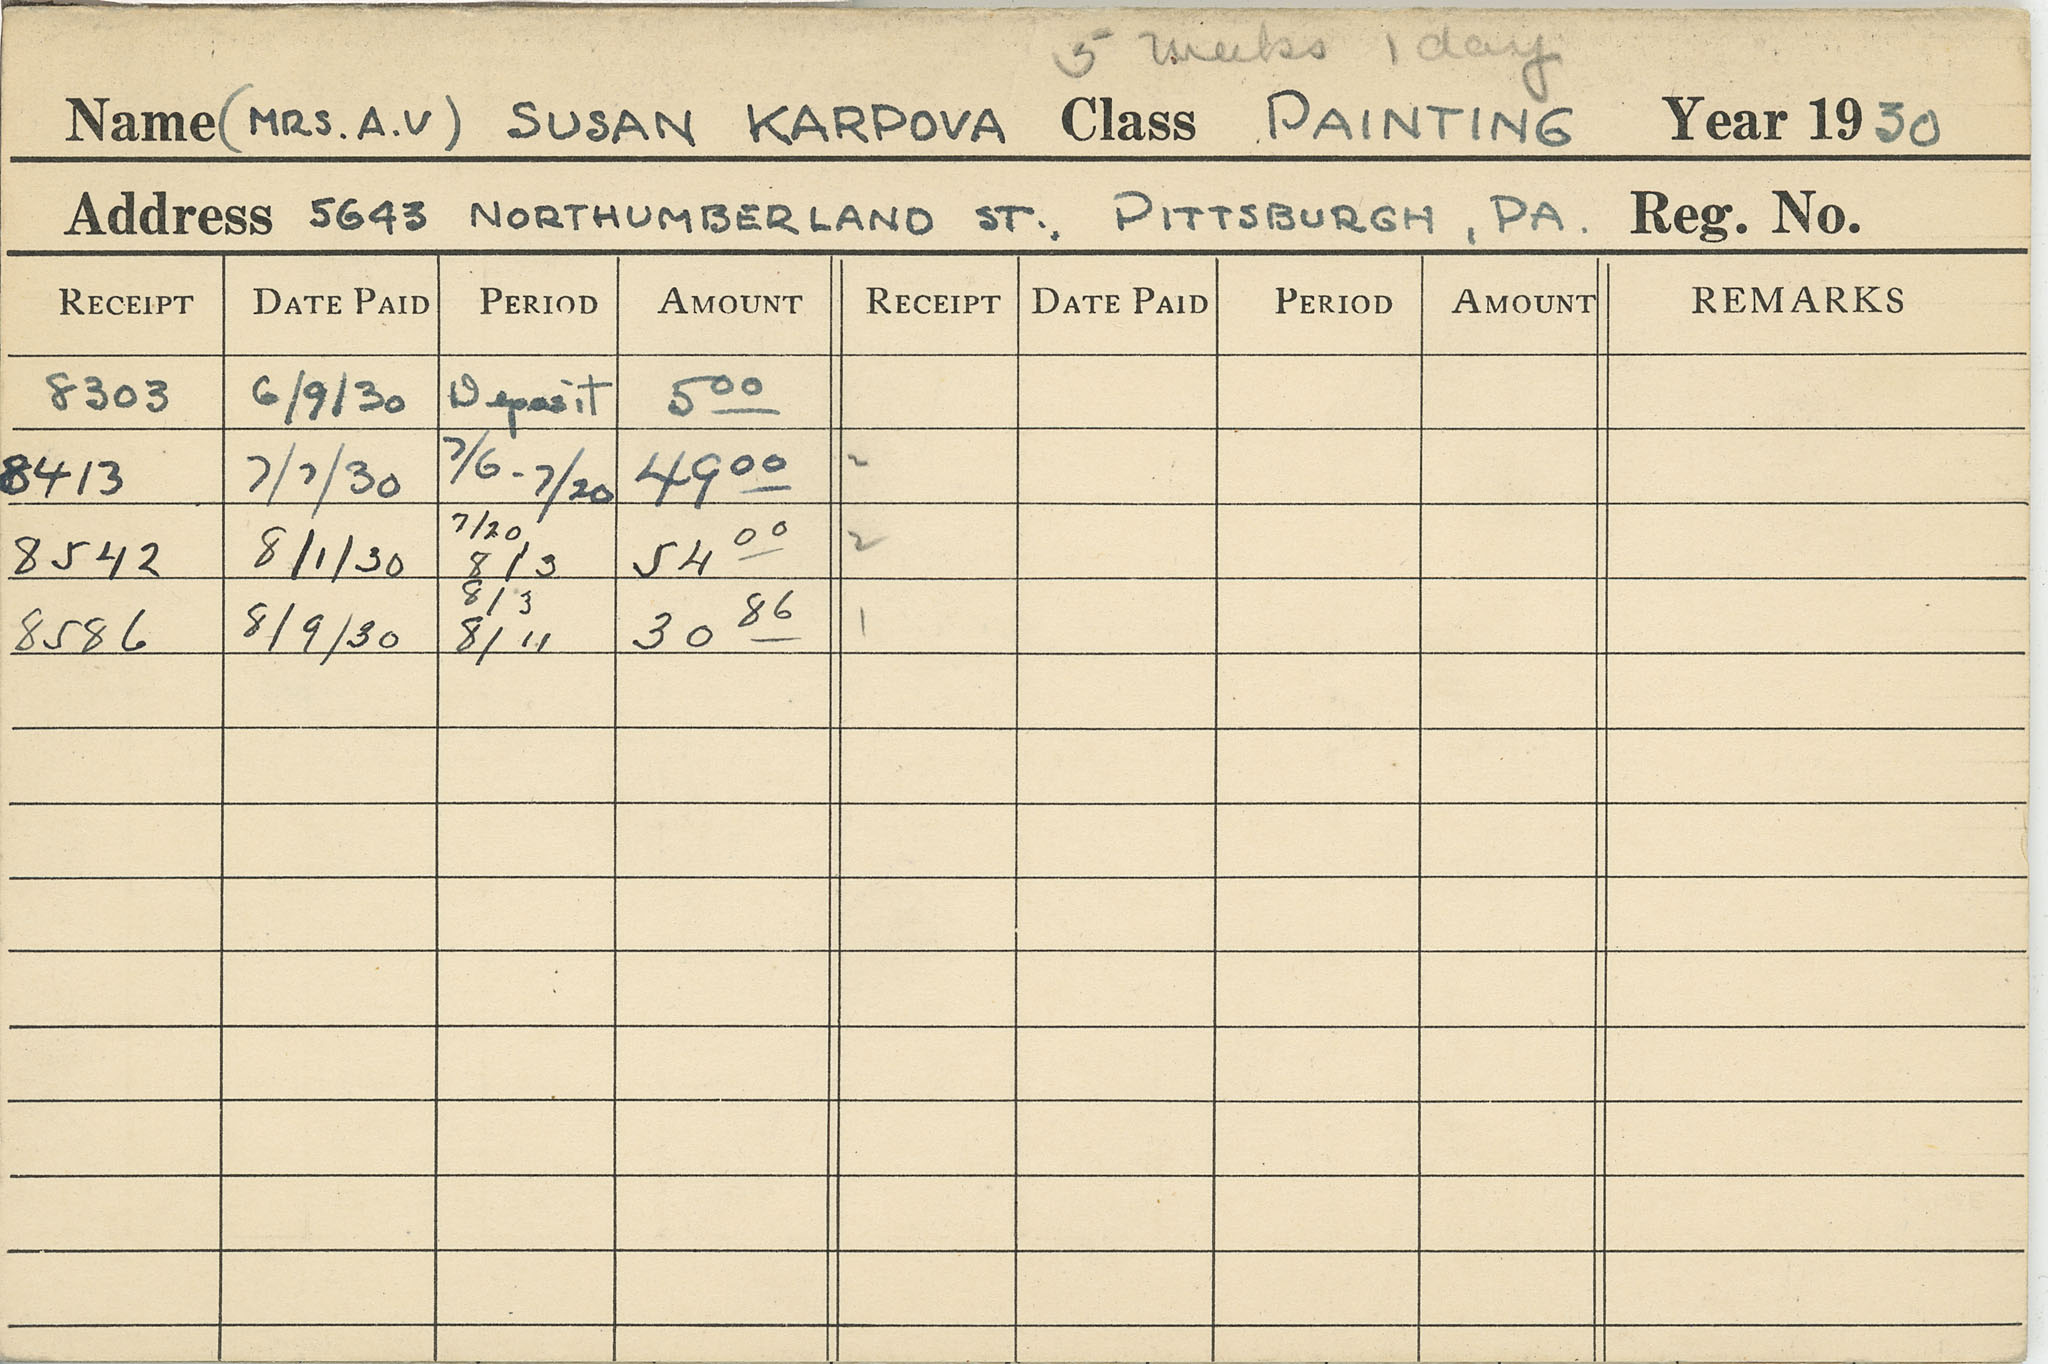 5 weeks 1 day
Name (MRS. A.V) SUSAN KARPOVA Class PAINTING Year 1930
Address 5643 NORTHUMBERLAND ST., PITTSBURGH, PA. Reg. No.
RECEIPT DATE PAID PERIOD AMOUNT RECEIPT DATE PAID PERIOD AMOUNT REMARKS
8303 6/9/30 Deposit 5 00
8413 7/7/30 7/6 - 7/20 49 00 2
8542 8/1/30 7/20 8/3 54 00 2
8586 8/9/30 8/3 8/11 30 86 1